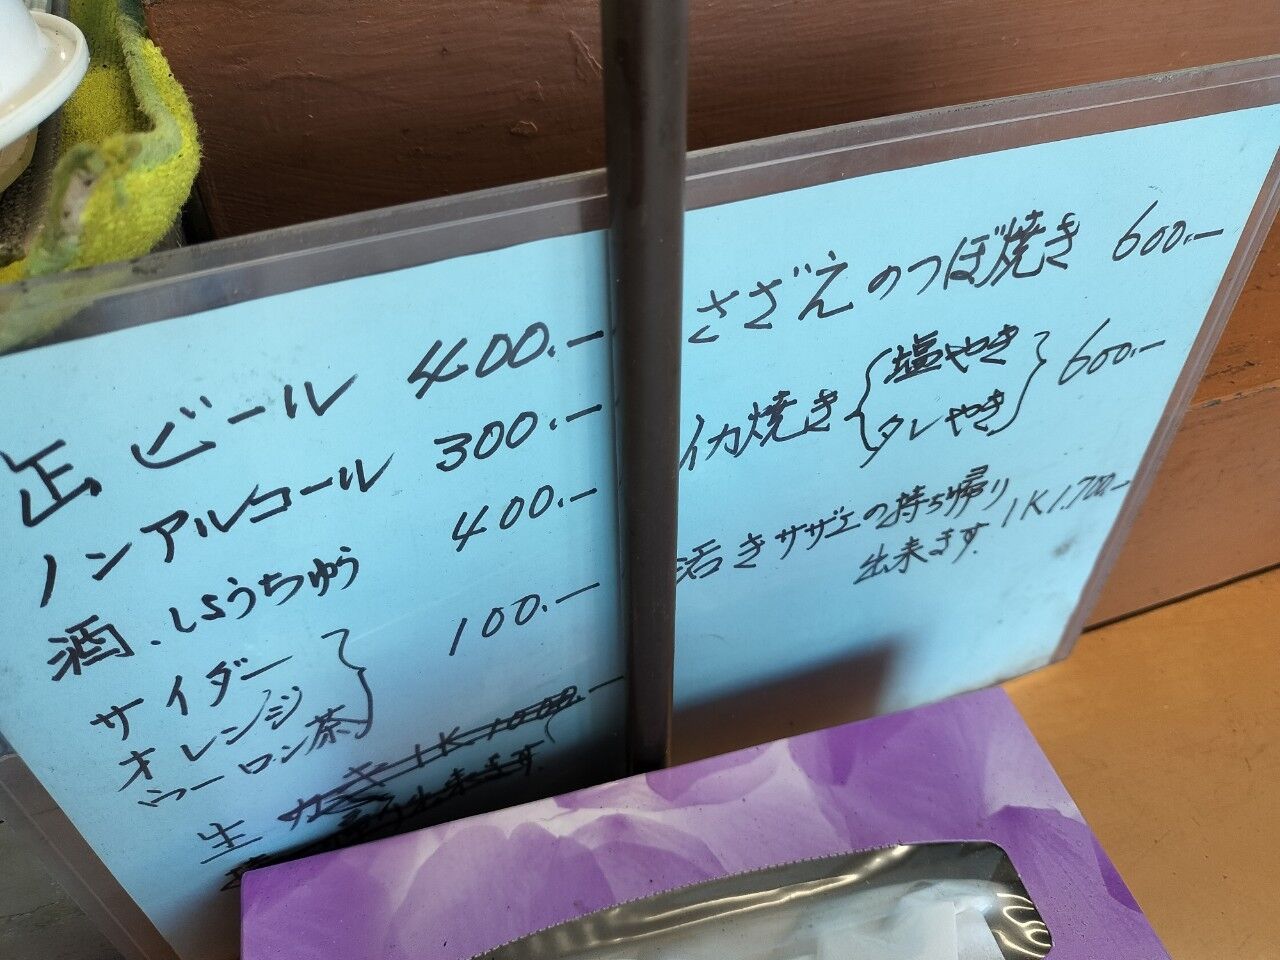 缶ビール 400.-
ノンアルコール 300.-
酒、しょうちゅう 400.-
サイダー
オレンジ
ウーロン茶 100.-
生カキ 1K 1000.-
出来ます.
さざえのつぼ焼き 600.-
イカ焼き 塩やき 600.-
タレやき
活きサザエの持ち帰り 1K 1,700.-
出来ます.